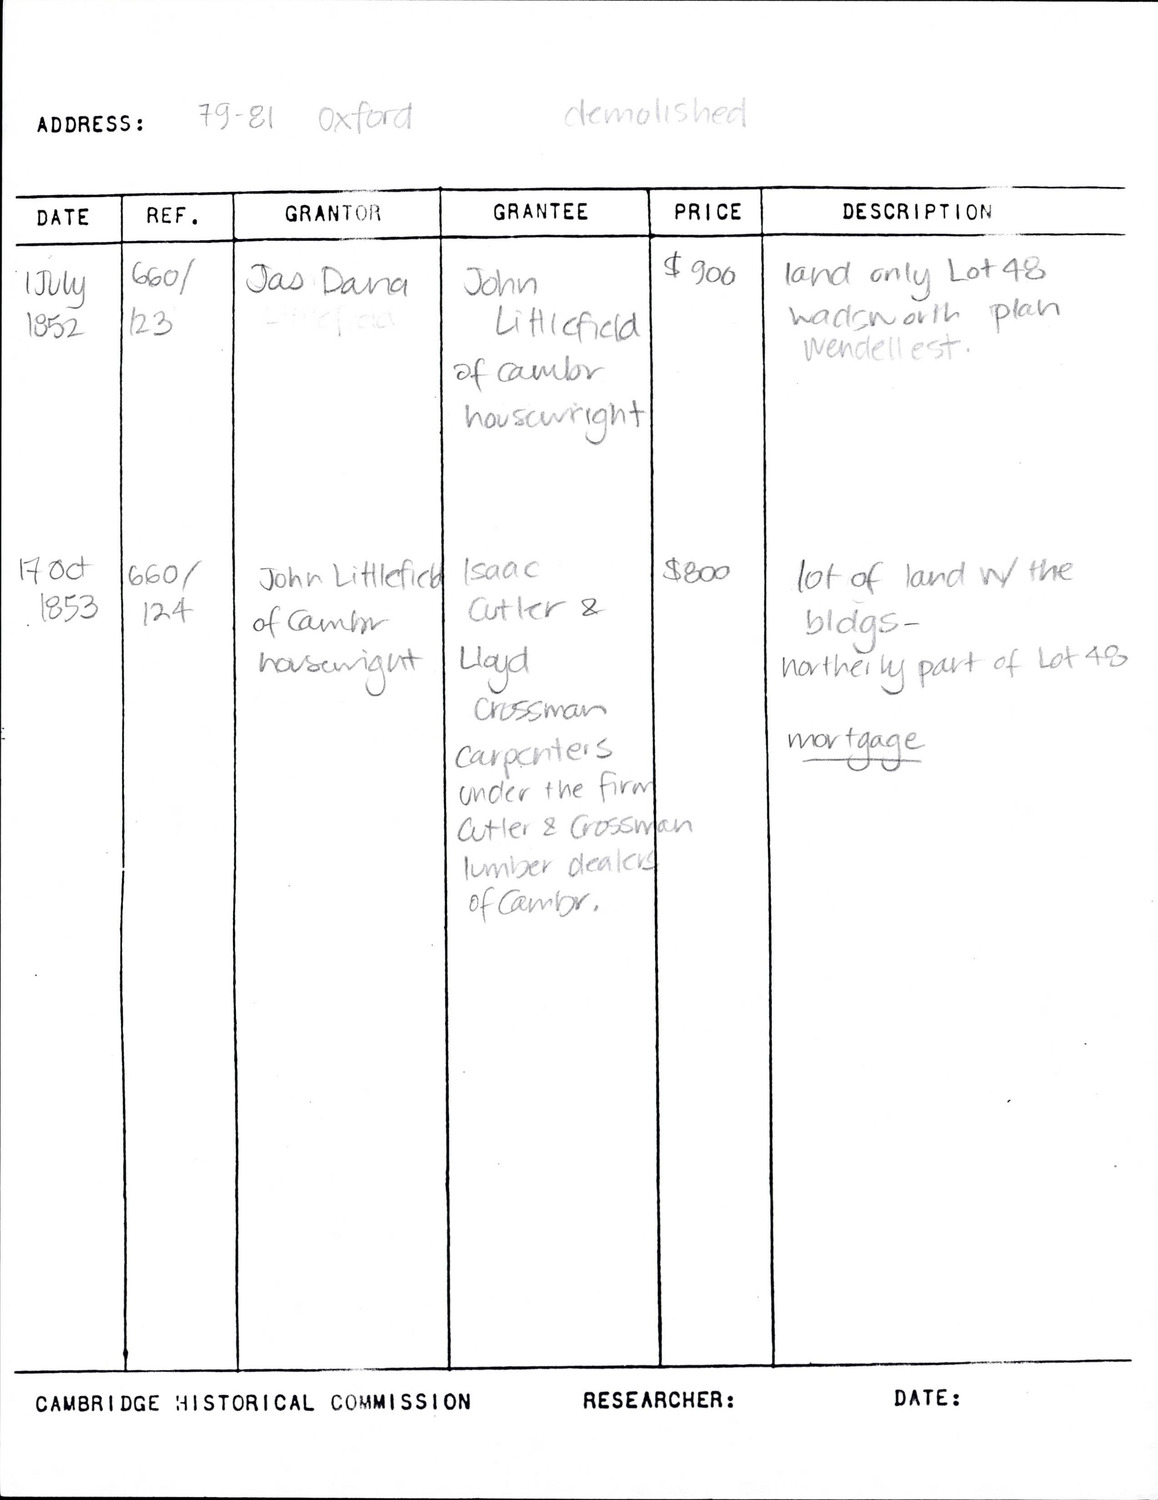 ADDRESS: 79-81 Oxford demolished
DATE REF. GRANTOR GRANTEE PRICE DESCRIPTION
1 July
1852
660/
123
Jas Dana
Littlefield
John
Littlefield
of Cambr
housewright
$900
land only Lot 48
Wadsworth plan
Wendell est.
17 Oct
1853
660/
124
John Littlefield
of Cambr
housewright
Isaac
Cutler &
Lloyd
Crossman
Carpenters
under the firm
Cutler & Crossman
lumber dealers
of Cambr.
$800
lot of land w/ the
bldgs-
northerly part of Lot 48
mortgage
CAMBRIDGE HISTORICAL COMMISSION RESEARCHER: DATE: